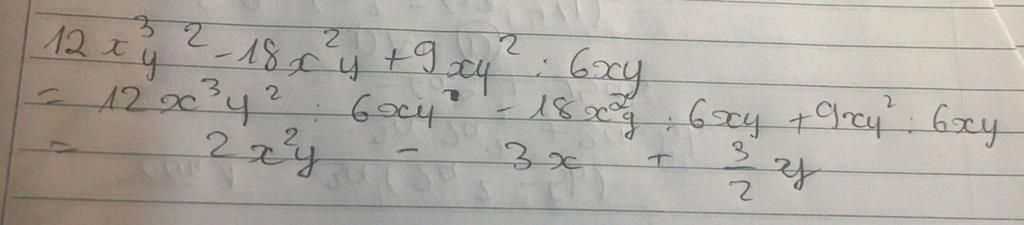 12x³y² - 18x²y + 9xy² : 6xy
= 12x³y² : 6xy - 18x²y : 6xy + 9xy² : 6xy
= 2x²y - 3x + 3/2 y